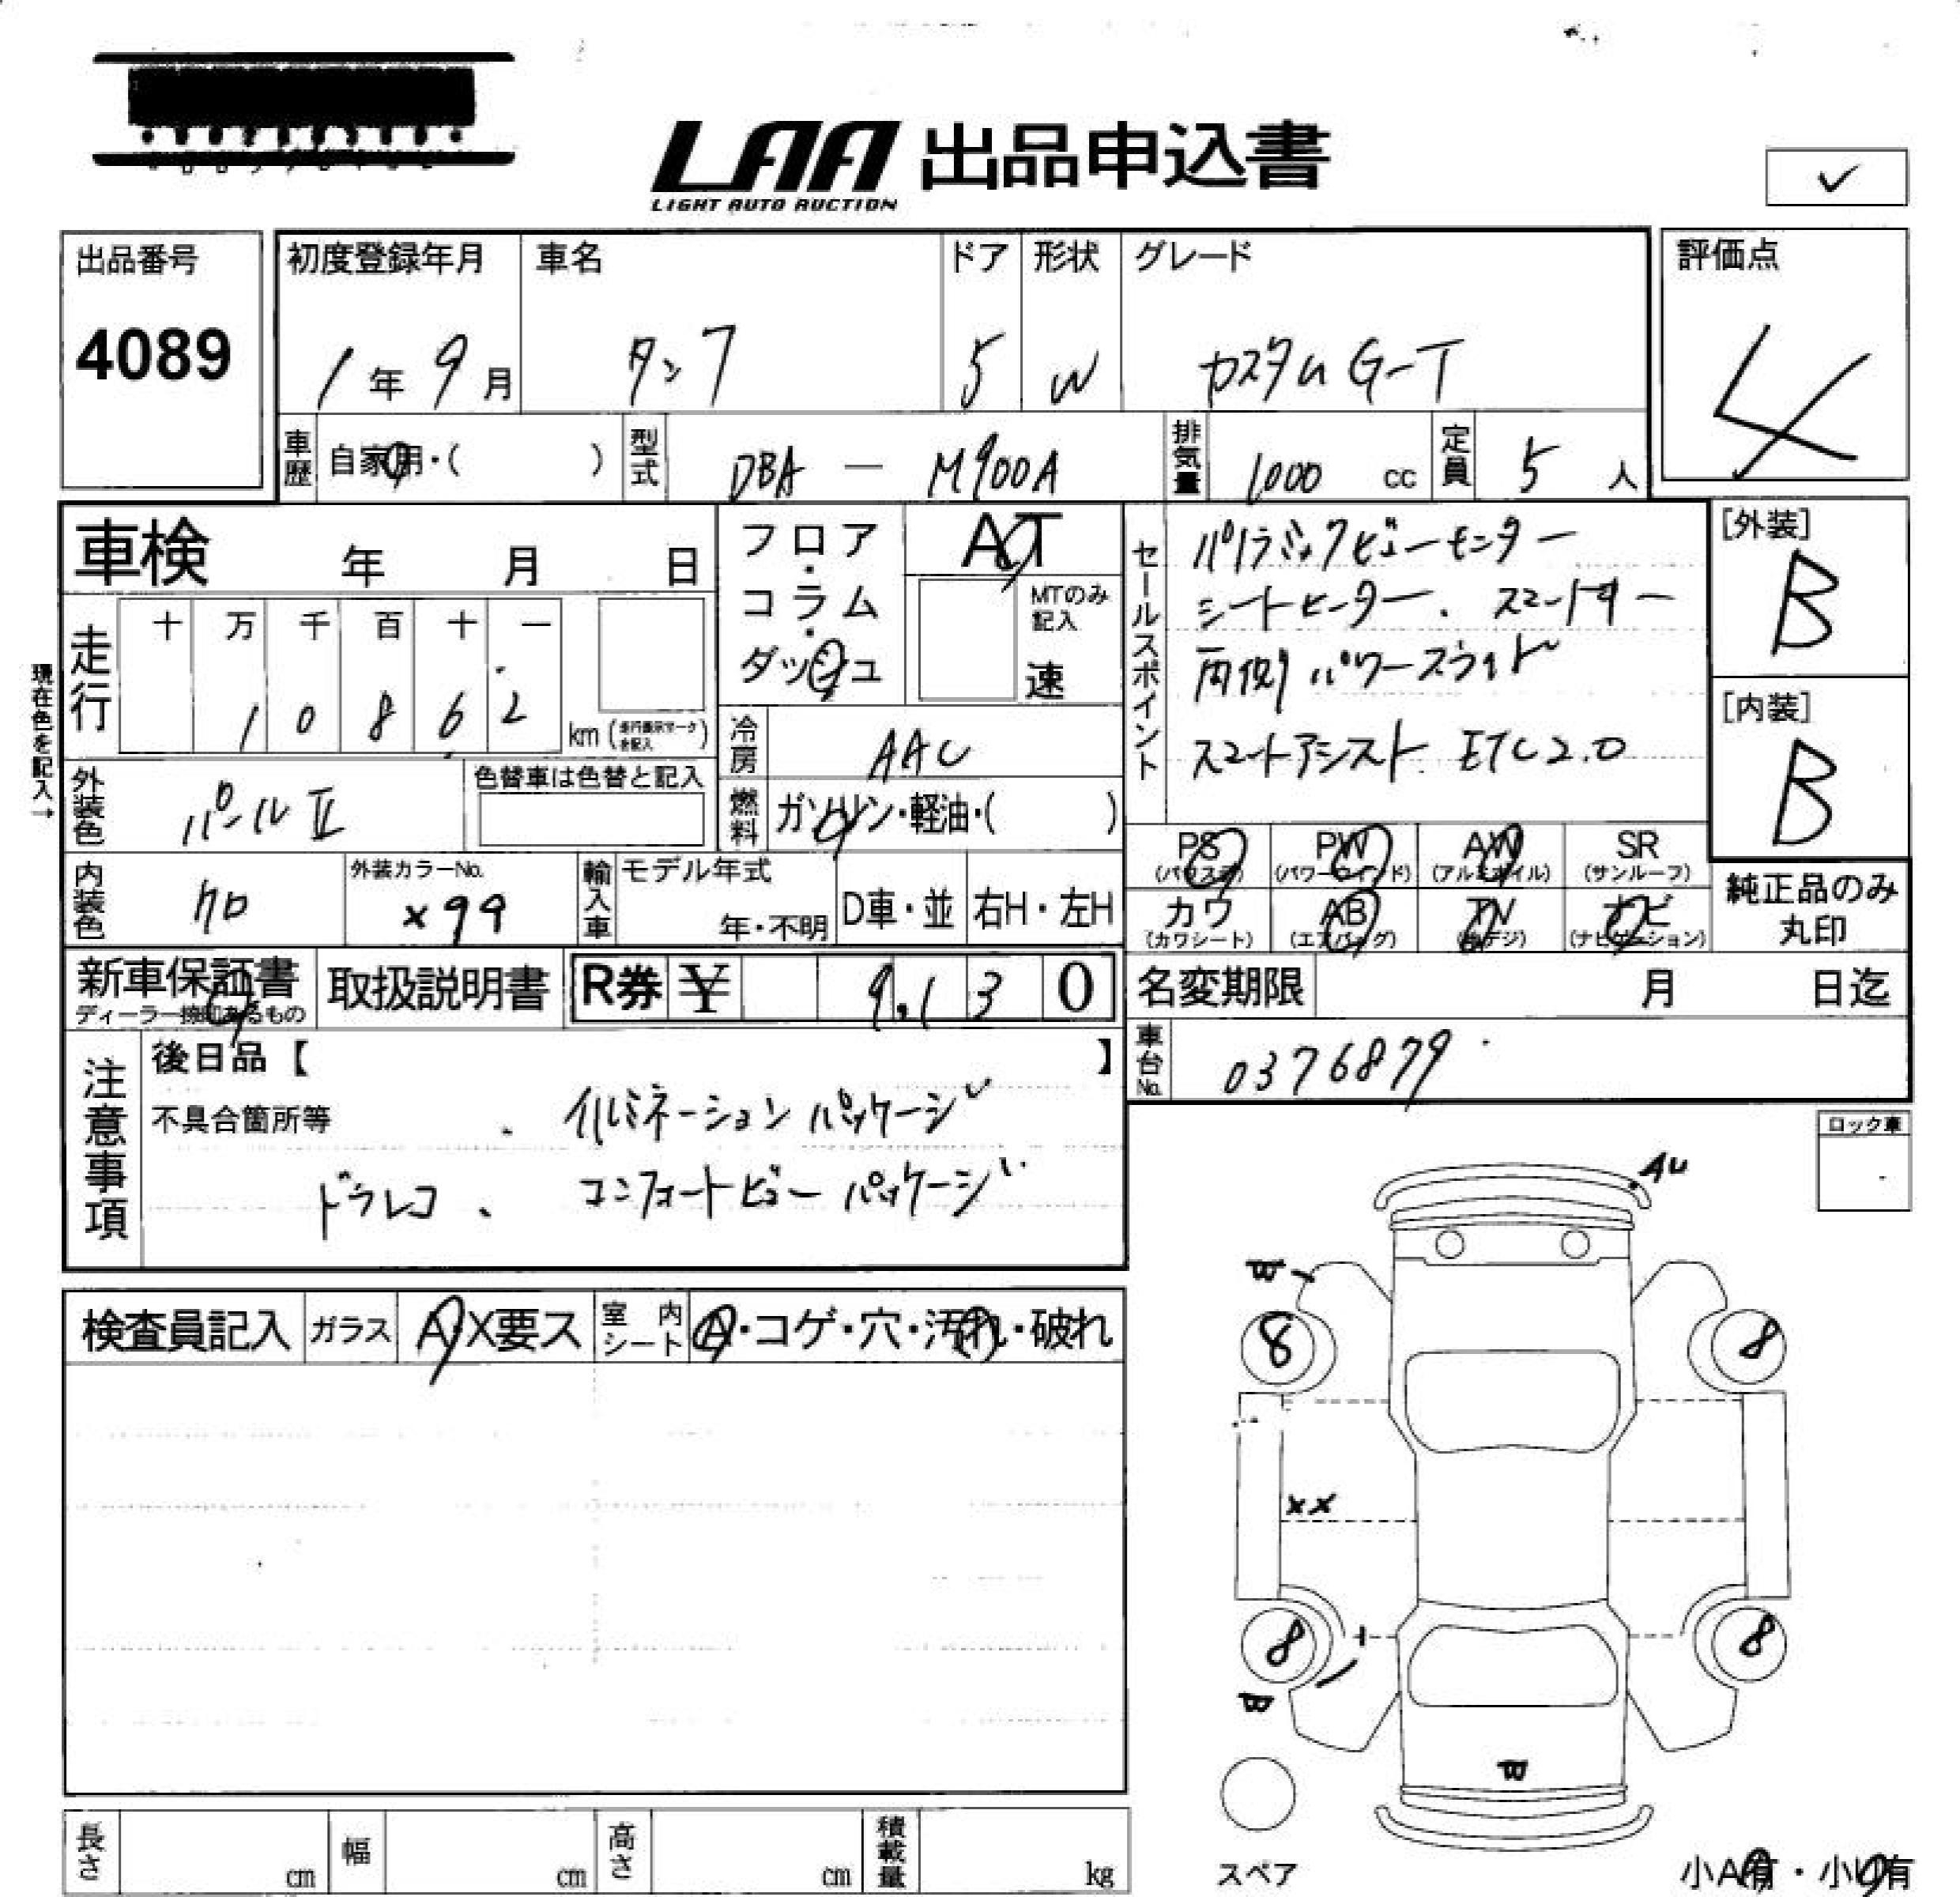 LAA 出品申込書
LIGHT AUTO AUCTION
✓
出品番号
4089
初度登録年月
1年9月
車名
タンク
ドア
5
形状
W
グレード
カスタムG-T
評価点
4
車歴
自家用・( )
型式
DBA — M900A
排気量
1,000 cc
定員
5人
車検 年 月 日
フロア・コラム・ダッシュ
AT
MTのみ記入
速
セールスポイント
パノラミックビューモニター
シートヒーター. スマートキー
両側パワースライド
スマートアシスト ETC2.0
[外装]
B
[内装]
B
現在色を記入→
走行
十 万 千 百 十 一
1 0 8 6 2
km (走行表示マークを記入)
冷房
AAC
外装色
パールⅡ
色替車は色替と記入
燃料
ガソリン・軽油・( )
内装色
クロ
外装カラーNo.
X99
輸入車
モデル年式
年・不明
D車・並
右H・左H
PS
(パワステ)
PW
(パワーウインド)
AW
(アルミホイル)
SR
(サンルーフ)
カワ
(カワシート)
AB
(エアバッグ)
TV
(地デジ)
ナビ
(ナビゲーション)
純正品のみ
丸印
新車保証書
ディーラー捺印あるもの
取扱説明書
R券 ¥ 9,130
名変期限 月 日迄
車台No.
0376879
注意事項
後日品【 】
不具合箇所等
イルミネーションパッケージ
ドラレコ、 コンフォートビューパッケージ
ロック車
検査員記入
ガラス
A・X要ス
室内シート
A・コゲ・穴・汚れ・破れ
AU
W
8 8
XX
8 8
W
W
スペア
長さ cm
幅 cm
高さ cm
積載量 kg
小A有・小U有